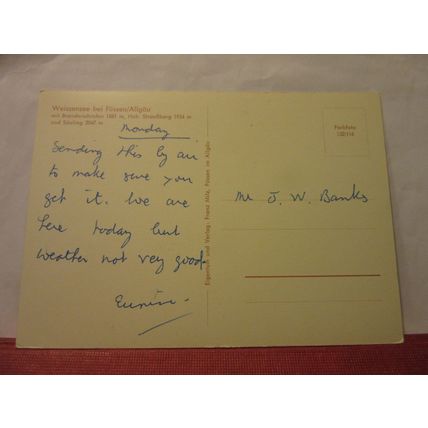 Weissensee bei Füssen/Allgäu
mit Brandenschrofen 1881 m, Hoh. Straußberg 1934 m
und Säuling 2047 m
Monday
Sending this by air
to make sure you
get it. We are
here today but
weather not very good.
Eunice
Eigentum und Verlag: Franz Milz, Füssen im Allgäu
Farbfoto
Mr J. W. Banks